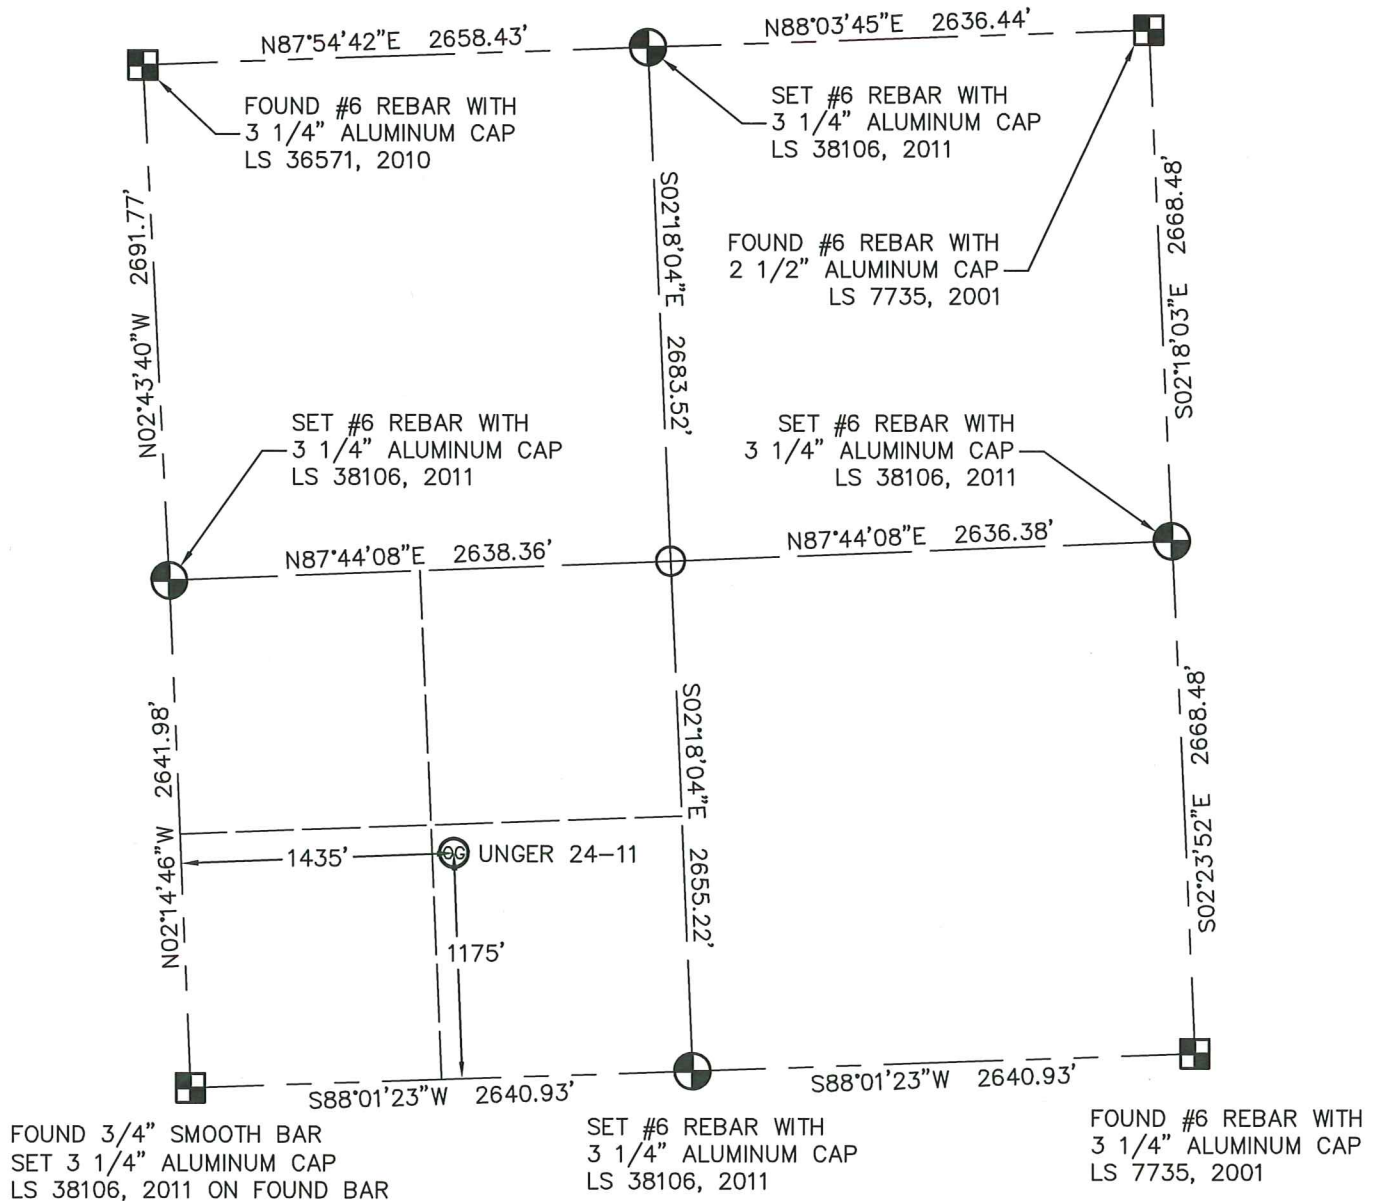 N87°54'42"E 2658.43'
N88°03'45"E 2636.44'
FOUND #6 REBAR WITH
3 1/4" ALUMINUM CAP
LS 36571, 2010
SET #6 REBAR WITH
3 1/4" ALUMINUM CAP
LS 38106, 2011
FOUND #6 REBAR WITH
2 1/2" ALUMINUM CAP
LS 7735, 2001
N02°43'40"W 2691.77'
S02°18'04"E 2683.52'
S02°18'03"E 2668.48'
SET #6 REBAR WITH
3 1/4" ALUMINUM CAP
LS 38106, 2011
SET #6 REBAR WITH
3 1/4" ALUMINUM CAP
LS 38106, 2011
N87°44'08"E 2638.36'
N87°44'08"E 2636.38'
N02°14'46"W 2641.98'
S02°18'04"E 2655.22'
S02°23'52"E 2668.48'
1435'
OG UNGER 24-11
1175'
S88°01'23"W 2640.93'
S88°01'23"W 2640.93'
FOUND 3/4" SMOOTH BAR
SET 3 1/4" ALUMINUM CAP
LS 38106, 2011 ON FOUND BAR
SET #6 REBAR WITH
3 1/4" ALUMINUM CAP
LS 38106, 2011
FOUND #6 REBAR WITH
3 1/4" ALUMINUM CAP
LS 7735, 2001